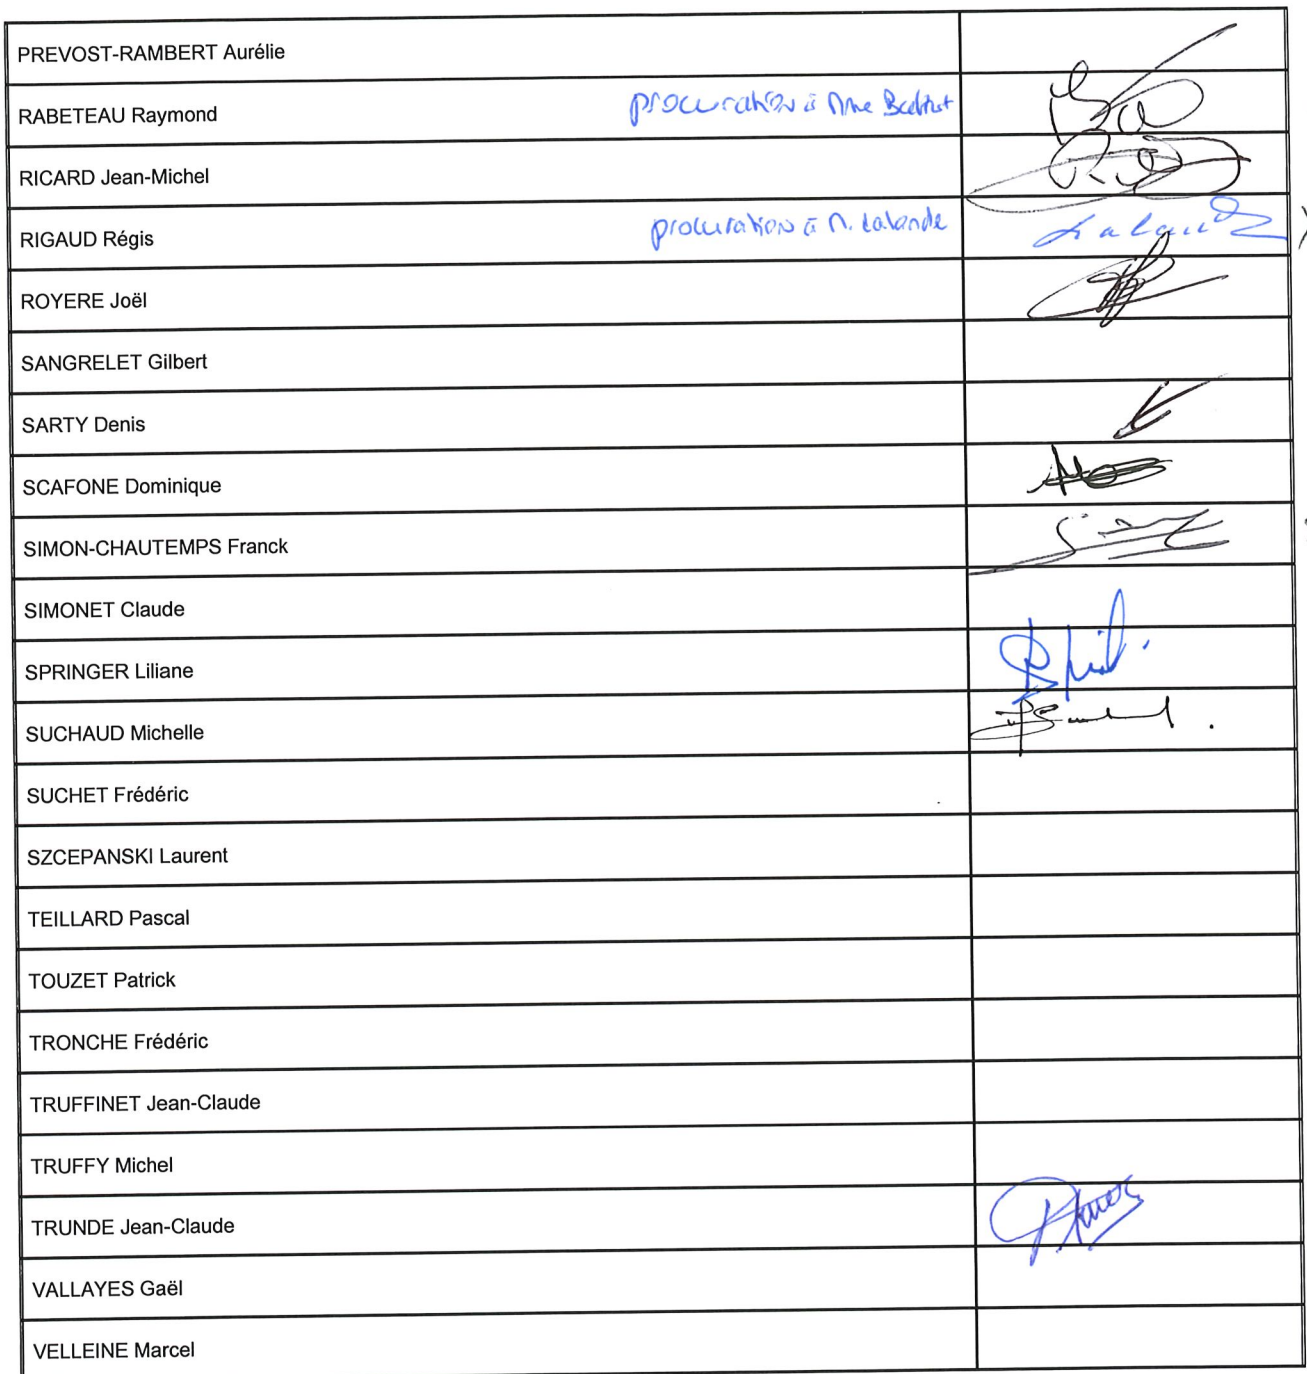 PREVOST-RAMBERT Aurélie
RABETEAU Raymond procuration à Mme
RICARD Jean-Michel
RIGAUD Régis procuration à M. Lalande Lalande
ROYERE Joël
SANGRELET Gilbert
SARTY Denis
SCAFONE Dominique
SIMON-CHAUTEMPS Franck
SIMONET Claude
SPRINGER Liliane
SUCHAUD Michelle
SUCHET Frédéric
SZCEPANSKI Laurent
TEILLARD Pascal
TOUZET Patrick
TRONCHE Frédéric
TRUFFINET Jean-Claude
TRUFFY Michel
TRUNDE Jean-Claude
VALLAYES Gaël
VELLEINE Marcel